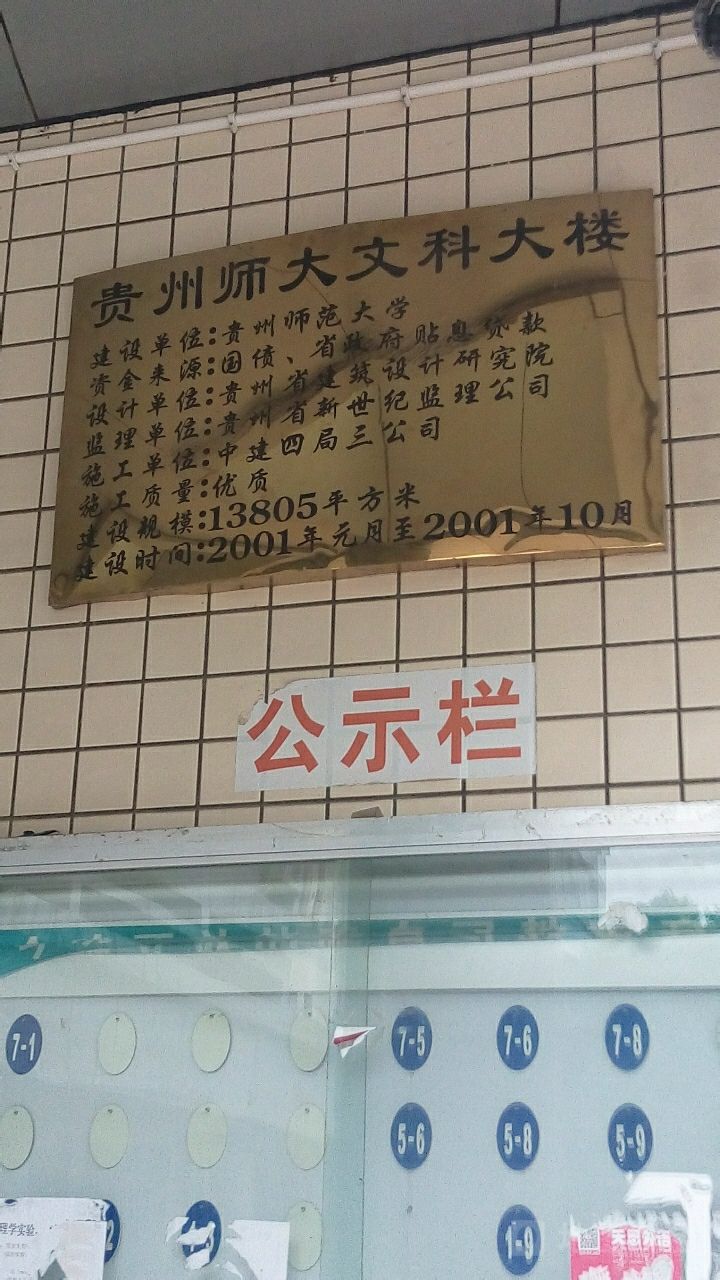 贵州师大文科大楼
建设单位:贵州师范大学
资金来源:国债、省政府贴息贷款
设计单位:贵州省建筑设计研究院
监理单位:贵州省新世纪监理公司
施工单位:中建四局三公司
施工质量:优质
建设规模:13805平方米
建设时间:2001年元月至2001年10月
公示栏
7-1 7-5 7-6 7-8
5-6 5-8 5-9
1-9
理学实验